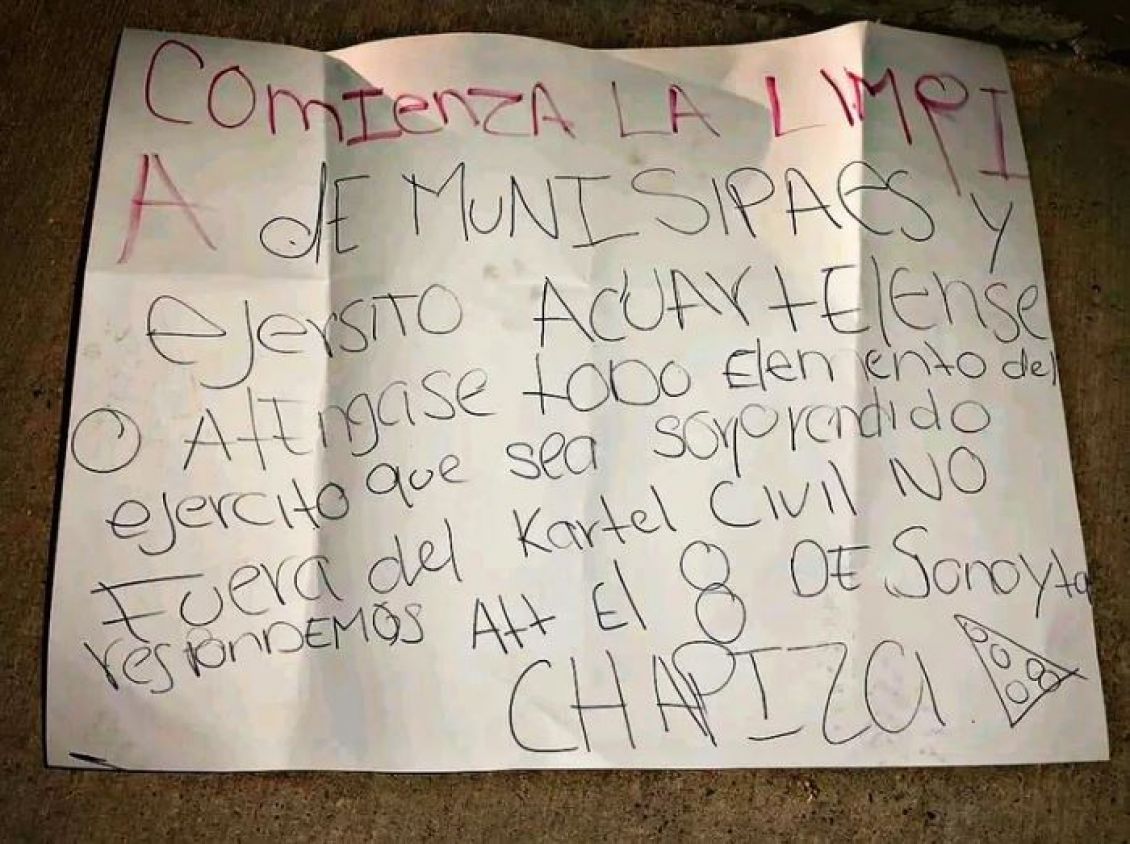 COmIenZA LA LIMPI
A dE MuNISIPAes y
eJersITO ACUArtElense
O AtIngase toDO Elemento del
ejercito que sea sorprendido
Fuera del Kartel Civil NO
resPonDEMOS Att El 8 DE Sonoyta
CHAPIZA